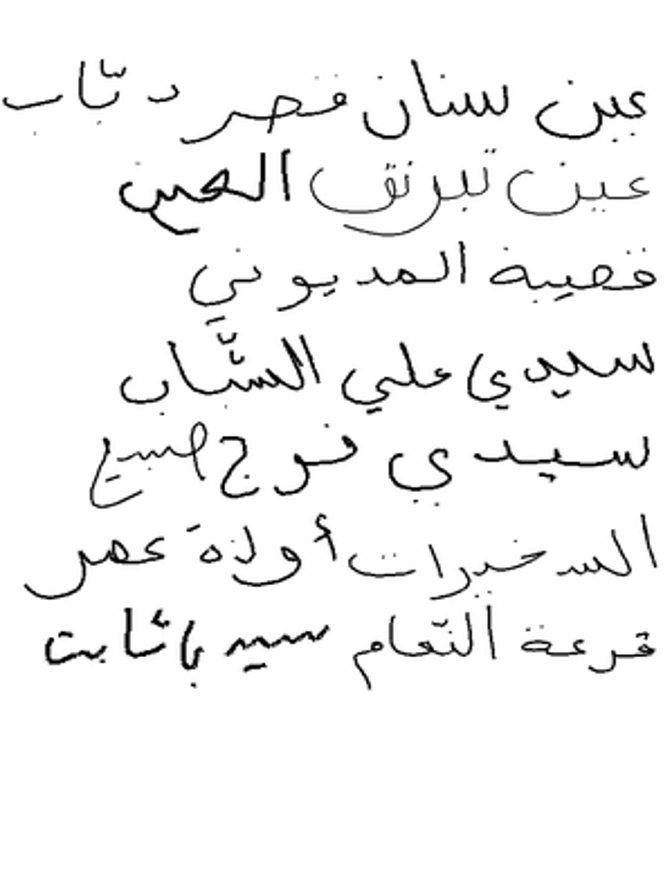 عين سنان قصر دبّاب
عين تبرنق العين
قصيبة المديوني
سيدي علي الشّاب
سيدي فرج صبيع
السخيرات أولاد عمر
قرعة النّعام سيد باثابت